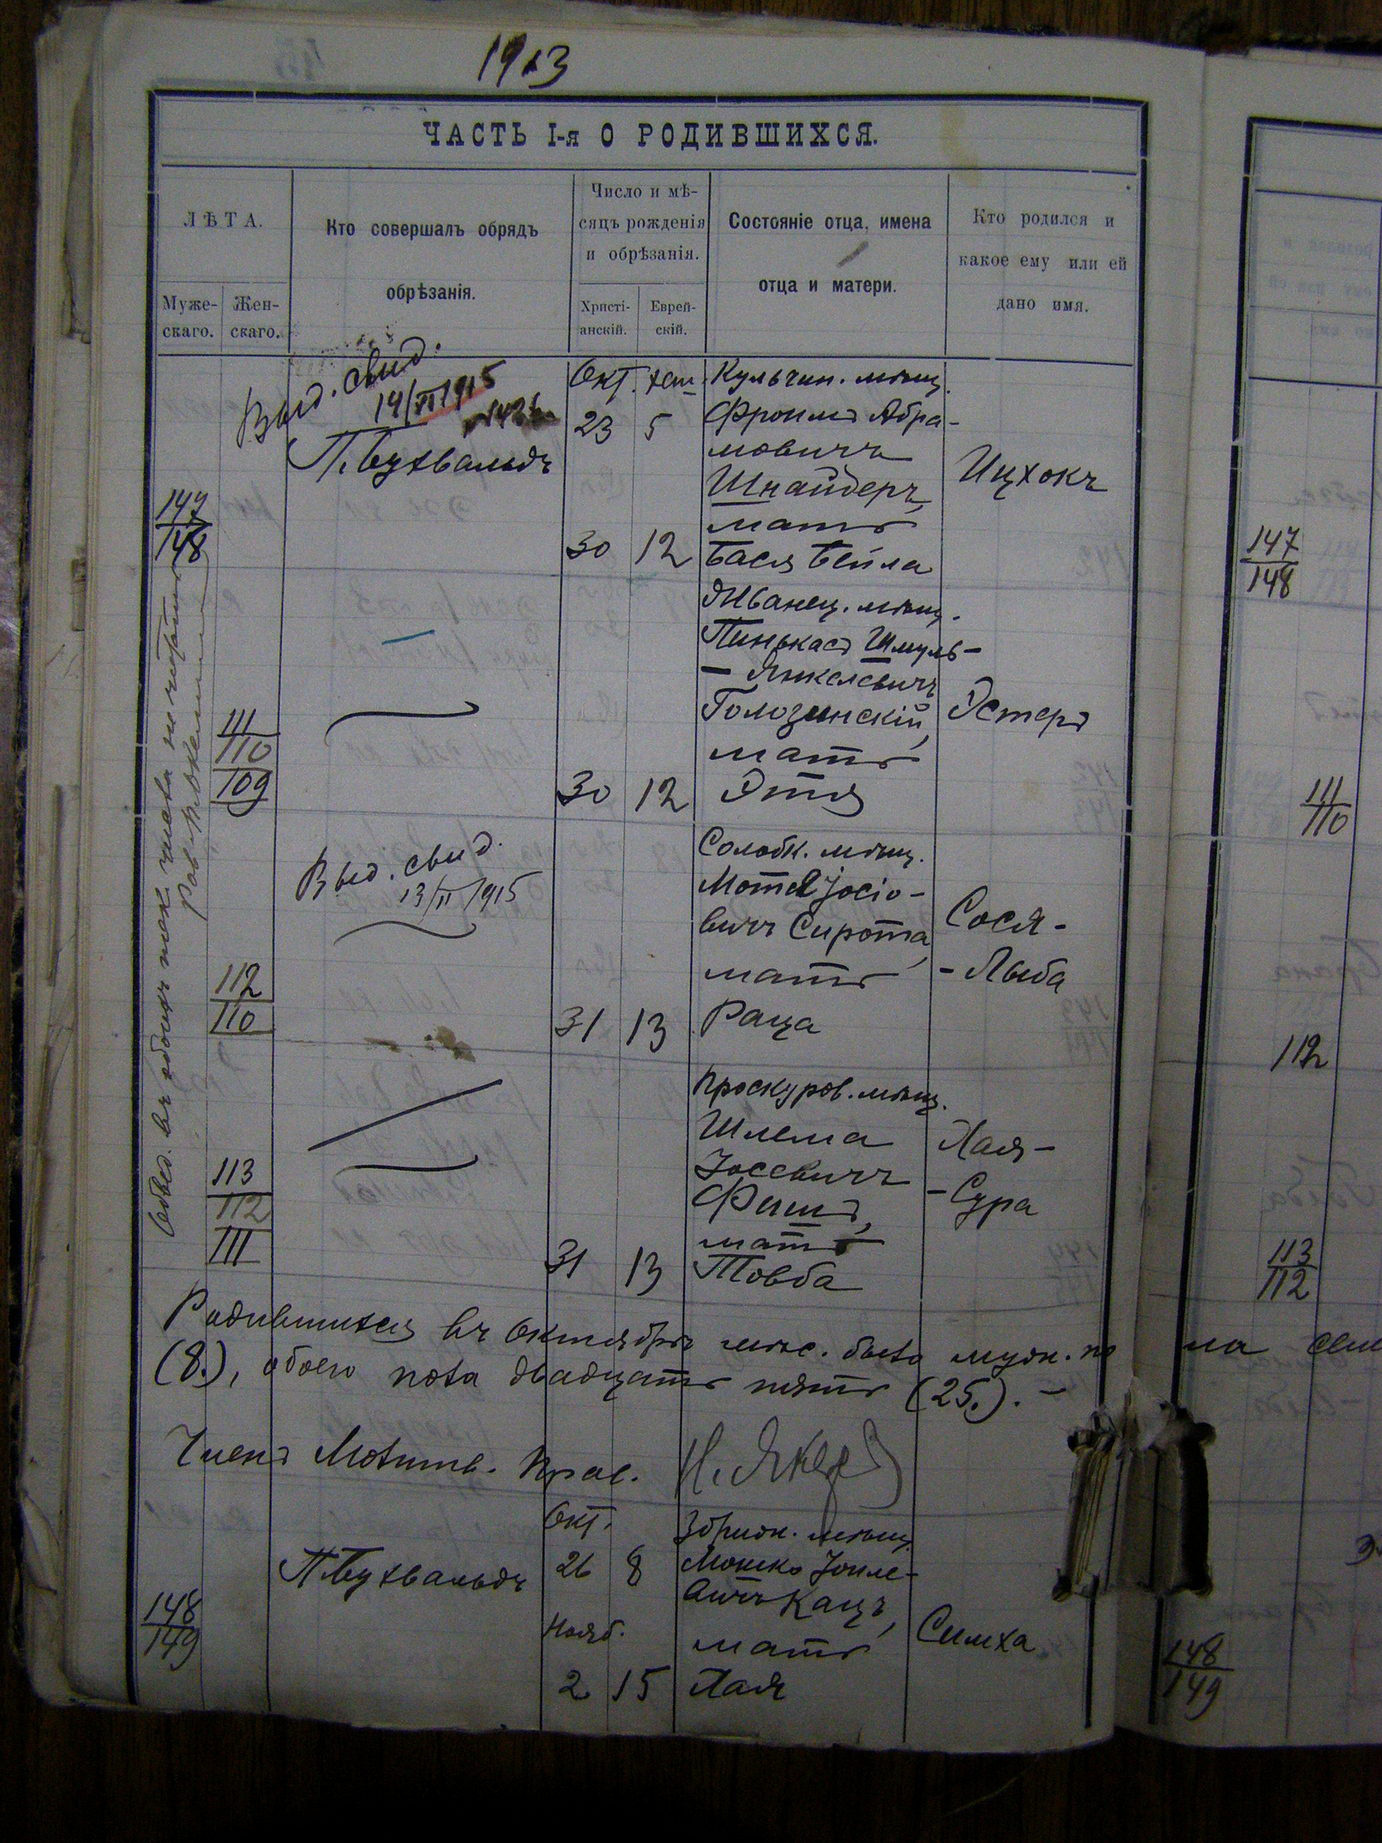 1913
ЧАСТЬ I-я О РОДИВШИХСЯ.
ЛѢТА.
Муже-
скаго.
Жен-
скаго.
Кто совершалъ обрядъ
обрѣзанія.
Число и мѣ-
сяцъ рожденія
и обрѣзанія.
Христі-
анскій.
Еврей-
скій.
Состояніе отца, имена
отца и матери.
Кто родился и
какое ему или ей
дано имя.
Выд. свид.
14/II 1915
П. Бухвальдъ
147
148
Окт. хеш.
23 5
30 12
Кульчин. мѣщ.
Фроимъ Абра-
мовичъ
Шнайдеръ,
мать
Бася Бейла
Ицхокъ
111
110
109
30 12
Жванец. мѣщ.
Пинькасъ Шмуль-
- Янкелевичъ
Голозинскій,
мать
Этя
Эстеръ
Выд. свид.
13/II 1915
112
110
31 13
Солобк. мѣщ.
Мотел Іосіо-
вичъ Сирота,
мать
Раца
Сося-
- Лыба
113
112
111
31 13
Проскуров. мѣщ.
Шлема
Іосевичъ
Фишъ,
мать
Товба
Хая-
- Сура
Родившихся въ Октябрѣ мѣс. было муж. по
(8.), обоего пола двадцать пять (25.). -
Членъ Молитв. Прав.
148
149
П. Бухвальдъ
Окт.
26 8
Нояб.
2 15
Збриж. мѣщ.
Мошко Іойле-
вичъ Кацъ,
мать
Хая
Симха
147
148
111
110
112
113
112
ла
148
149